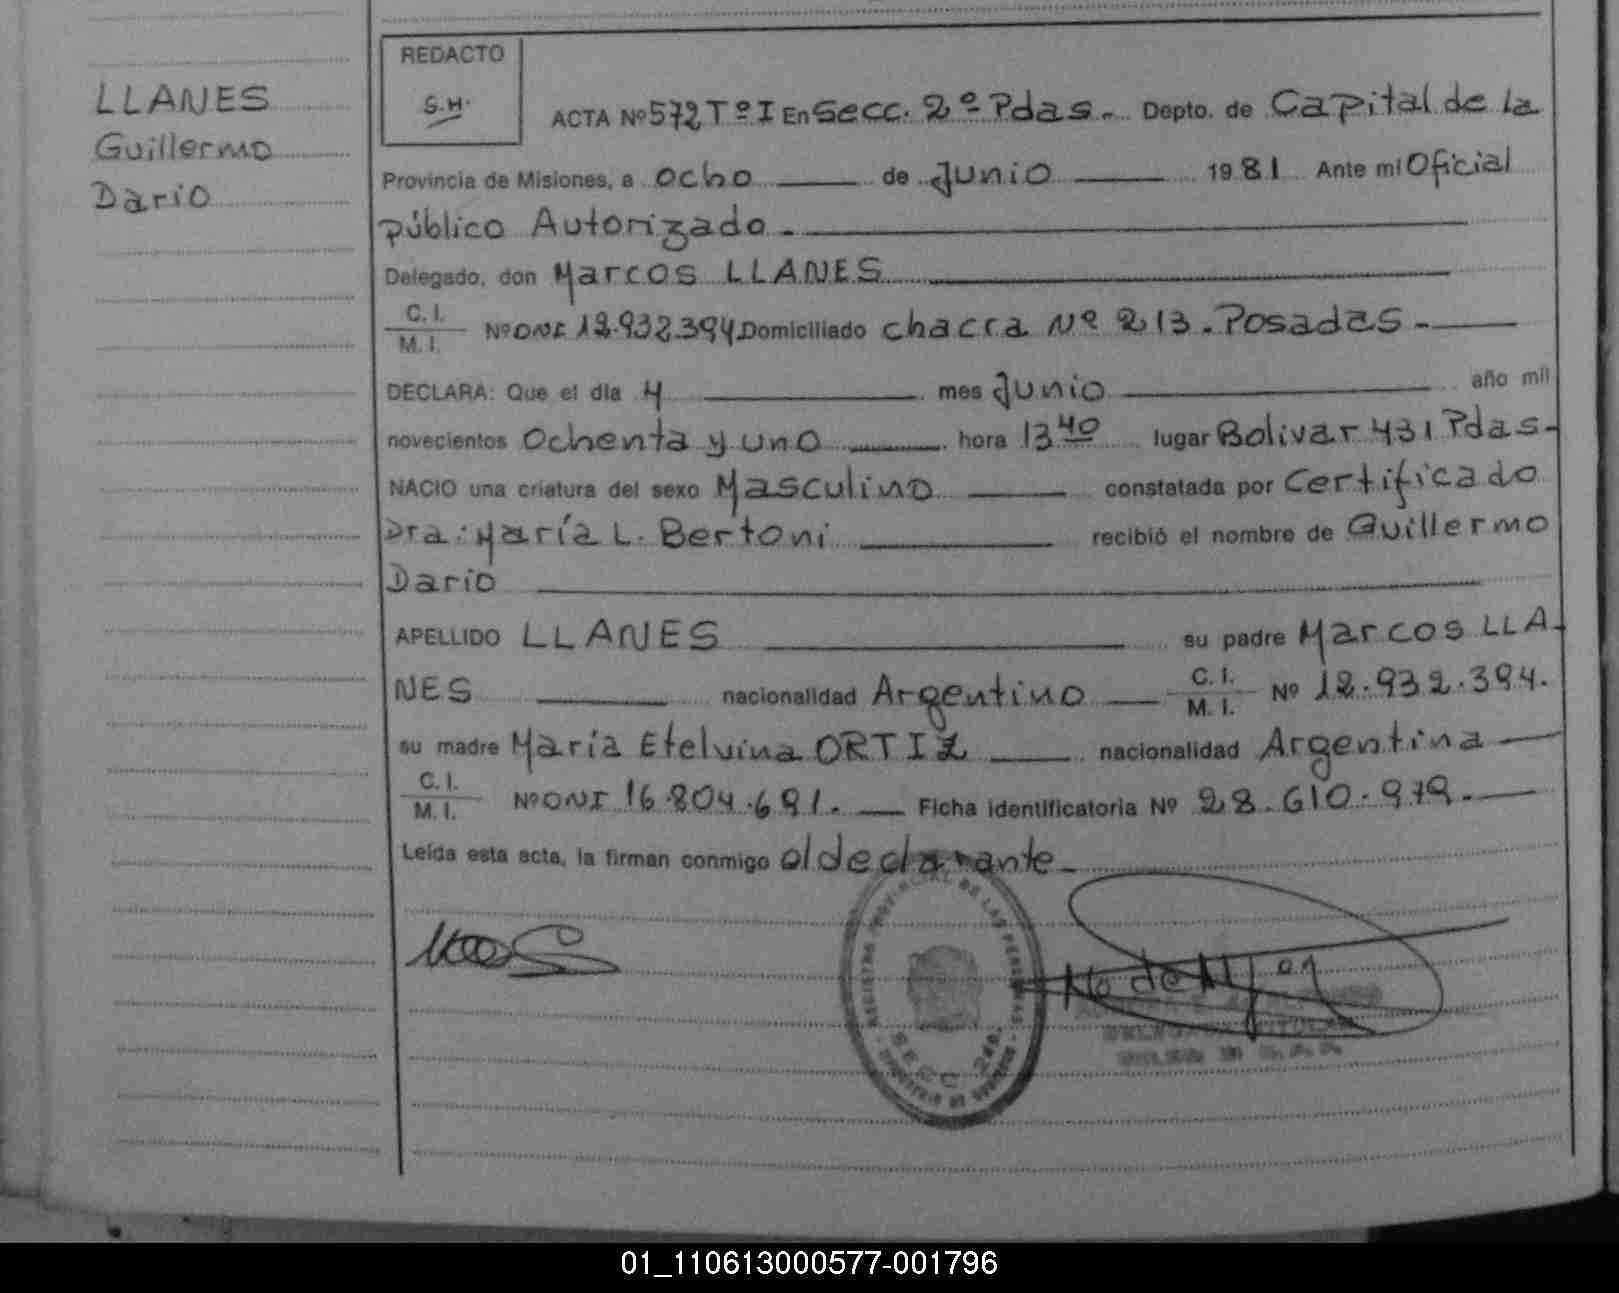 LLANES
Guillermo
Dario
REDACTO
S.H.
ACTA Nº 572 Tº I En Secc. 2º Pdas. Depto. de Capital de la
Provincia de Misiones, a ocho de Junio 1981 Ante mi Oficial
público Autorizado.
Delegado, don Marcos LLANES
C. I.
M. I. Nº DNI 12.932.394 Domiciliado chacra Nº 213. Posadas.
DECLARA: Que el dia 4 mes Junio año mil
novecientos Ochenta y uno hora 13 40 lugar Bolivar 431 Pdas.
NACIO una criatura del sexo Masculino constatada por Certificado
Dra: María L. Bertoni recibió el nombre de Guillermo
Dario
APELLIDO LLANES su padre Marcos LLA-
NES nacionalidad Argentino C. I.
M. I. Nº 12.932.394.
su madre María Etelvina ORTIZ nacionalidad Argentina
C. I.
M. I. Nº DNI 16.804.691. Ficha identificatoria Nº 28.610.979.
Leída esta acta, la firman conmigo el declarante.
REGISTRO PROVINCIAL DE LAS PERSONAS
SECC 2da.
MINISTERIO DE GOBIERNO
01_110613000577-001796